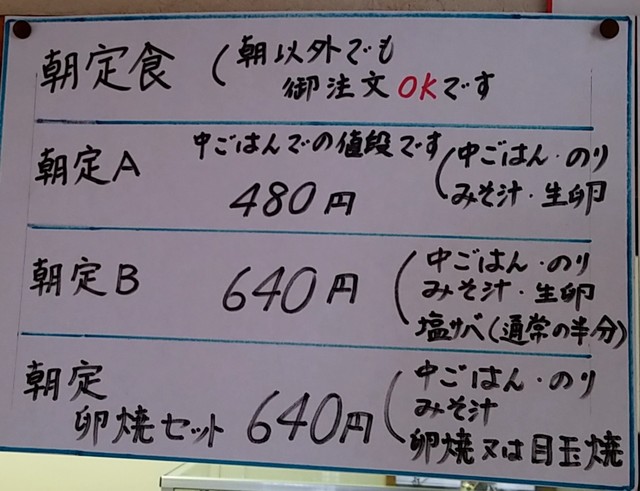 朝定食（朝以外でも
御注文OKです
朝定A 中ごはんでの値段です
480円（中ごはん・のり
みそ汁・生卵
朝定B 640円（中ごはん・のり
みそ汁・生卵
塩サバ（通常の半分）
朝定
卵焼セット 640円（中ごはん・のり
みそ汁
卵焼又は目玉焼